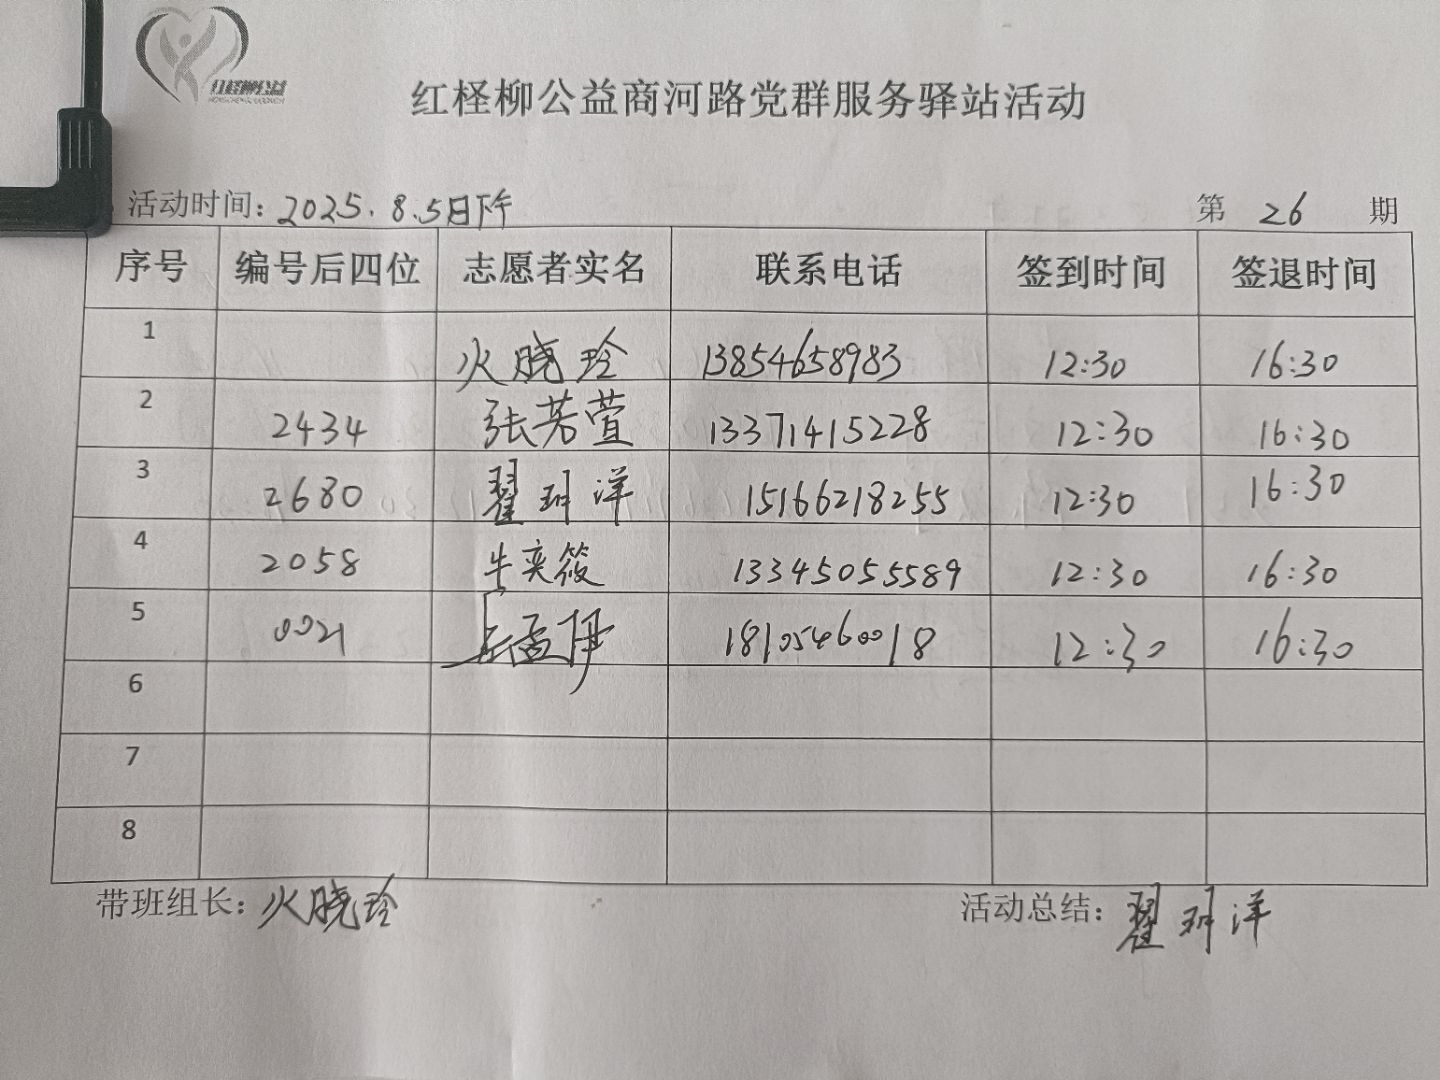 红柽柳公益
红柽柳公益商河路党群服务驿站活动
活动时间：2025.8.5日下午 第 26 期
序号 编号后四位 志愿者实名 联系电话 签到时间 签退时间
1 火晓玲 13854658983 12:30 16:30
2 2434 张若萱 13371415228 12:30 16:30
3 2680 翟玥洋 15166218255 12:30 16:30
4 2058 牛奕筱 13345055589 12:30 16:30
5 0021 18105460018 12:30 16:30
6
7
8
带班组长：火晓玲 活动总结：翟玥洋